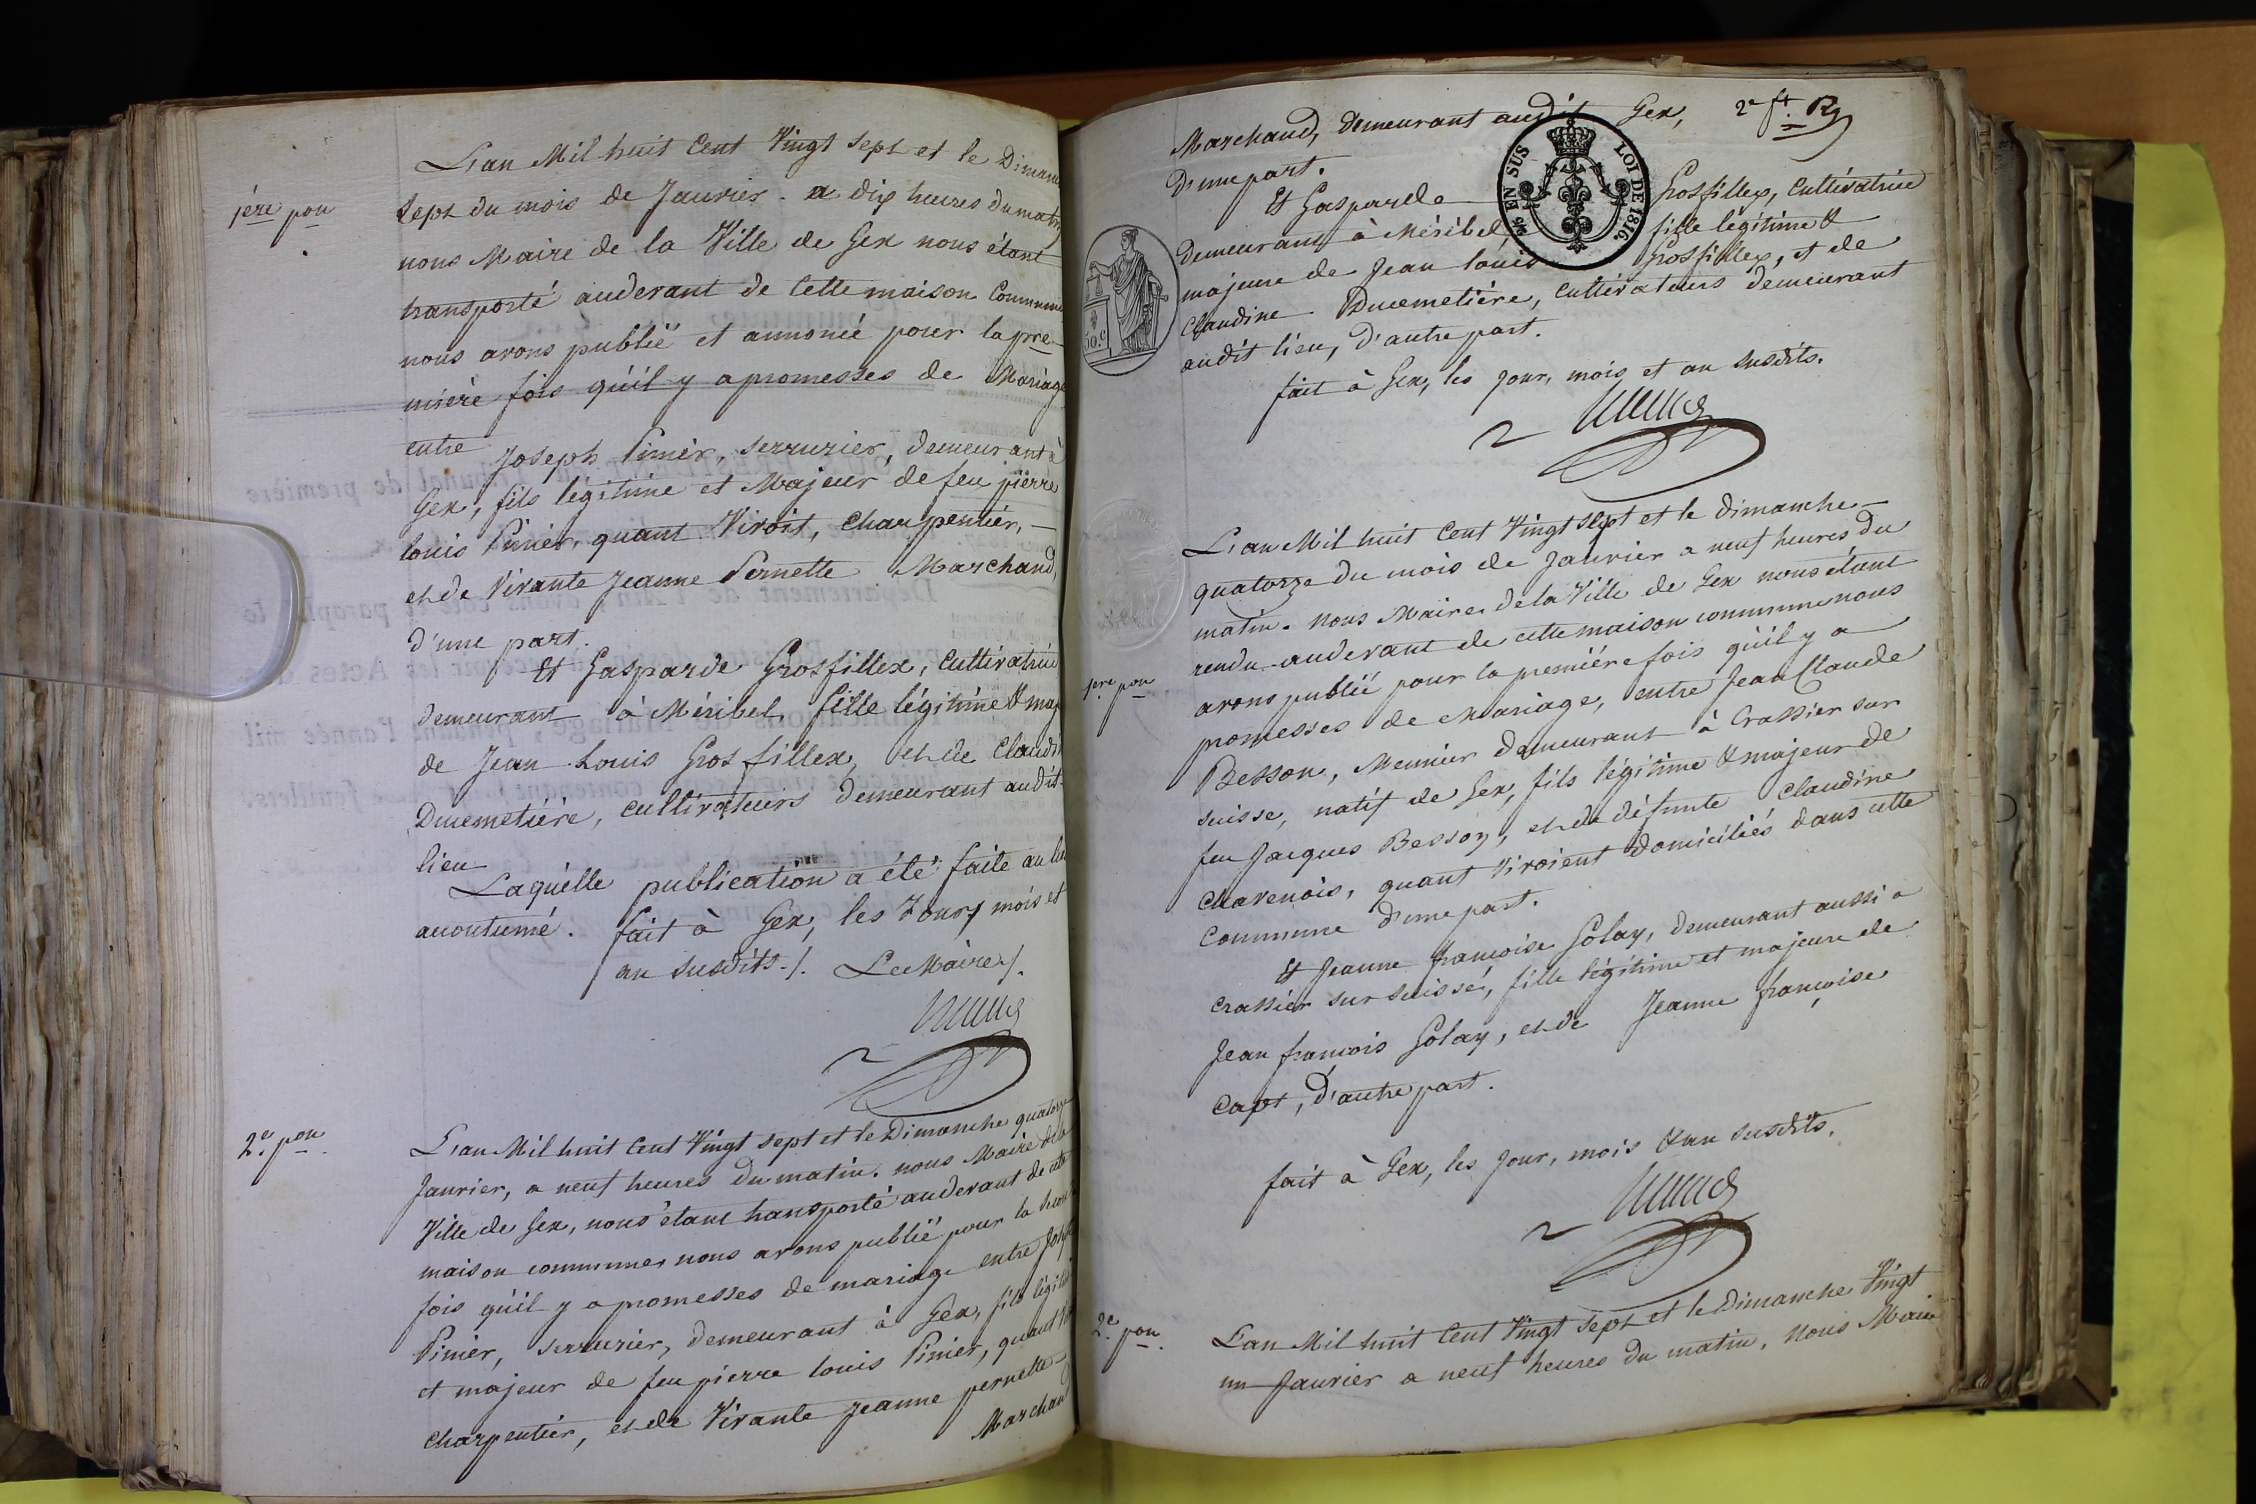 1ère pon
L'an Mil huit Cent Vingt Sept et le Dimanc
Sept du mois de Janvier. a dix heures du matin
nous Maire de la Ville de Gex nous étant
transporté audevant de Cette maison Commune
nous avons publié et annoncé pour la pre-
mière fois qu'il y a promesses de Mariage
entre Joseph Pinier, serrurier, demeurant à
Gex, fils légitime et Majeur de feu pierre
louis Pinier, quant Vivoit, Charpentier,
et de Vivante Jeanne Pernette Marchand,
d'une part.
Et Gasparde Grosfillex, Cultivatrice
demeurant à Méribel, fille légitime & maj
de Jean Louis Grosfillex, et de Claudi
Ducemetière, cultivateurs demeurant audit
lieu
Laquelle publication a été faite au lieu
accoutumé. fait à Gex, les Jour, mois et
an susdits./. Le Maire/.
2e. pon.
L'an Mil huit Cent Vingt sept et le Dimanche quatorze
Janvier, a neuf heures du matin. nous Maire de la
Ville de Gex, nous étant transporté audevant de cette
maison commune, nous avons publié pour la secon
fois qu'il y a promesses de mariage entre Joseph
Pinier, Serrurier, demeurant à Gex, fils légiti
et majeur de feu pierre louis Pinier, quant Viv
charpentier, et de Vivante Jeanne pernette
Marchand
Marchand, demeurant audit Gex, 2e ft.
D'une part.
EN SUS
LOI DE 1816.
50.c
Et Gasparde Grosfillex, Cultivatrice
demeurant à Méribel fille légitime &
majeure de Jean louis Grosfillex, et de
Claudine Ducemetière, cultivateurs demeurant
audit lieu, D'autre part.
fait à Gex, les Jour, mois et an susdits.
1ere pon
L'an Mil huit Cent Vingt sept et le Dimanche
quatorze du mois de Janvier a neuf heures du
matin. Nous Maire de la Ville de Gex nous étant
rendu audevant de cette maison commune nous
avons publié pour la première fois qu'il y a
promesses de Mariage, entre Jean Claude
Besson, Meunier demeurant à Crassier sur
suisse, natif de Gex, fils légitime & majeur de
feu Jacques Besson, et de défunte Claudine
Chavenois, quant Vivoient domiciliés dans cette
Commune D'une part.
Et Jeanne françoise Golay, demeurant aussi a
Crassier sur suisse, fille légitime et majeure de
Jean françois Golay, et de Jeanne françoise
Capt, D'autre part.
fait à Gex, les Jour, mois & an susdits.
2e. pon.
L'an Mil huit Cent Vingt sept et le Dimanche Vingt
un Janvier a neuf heures du matin. Nous Maire